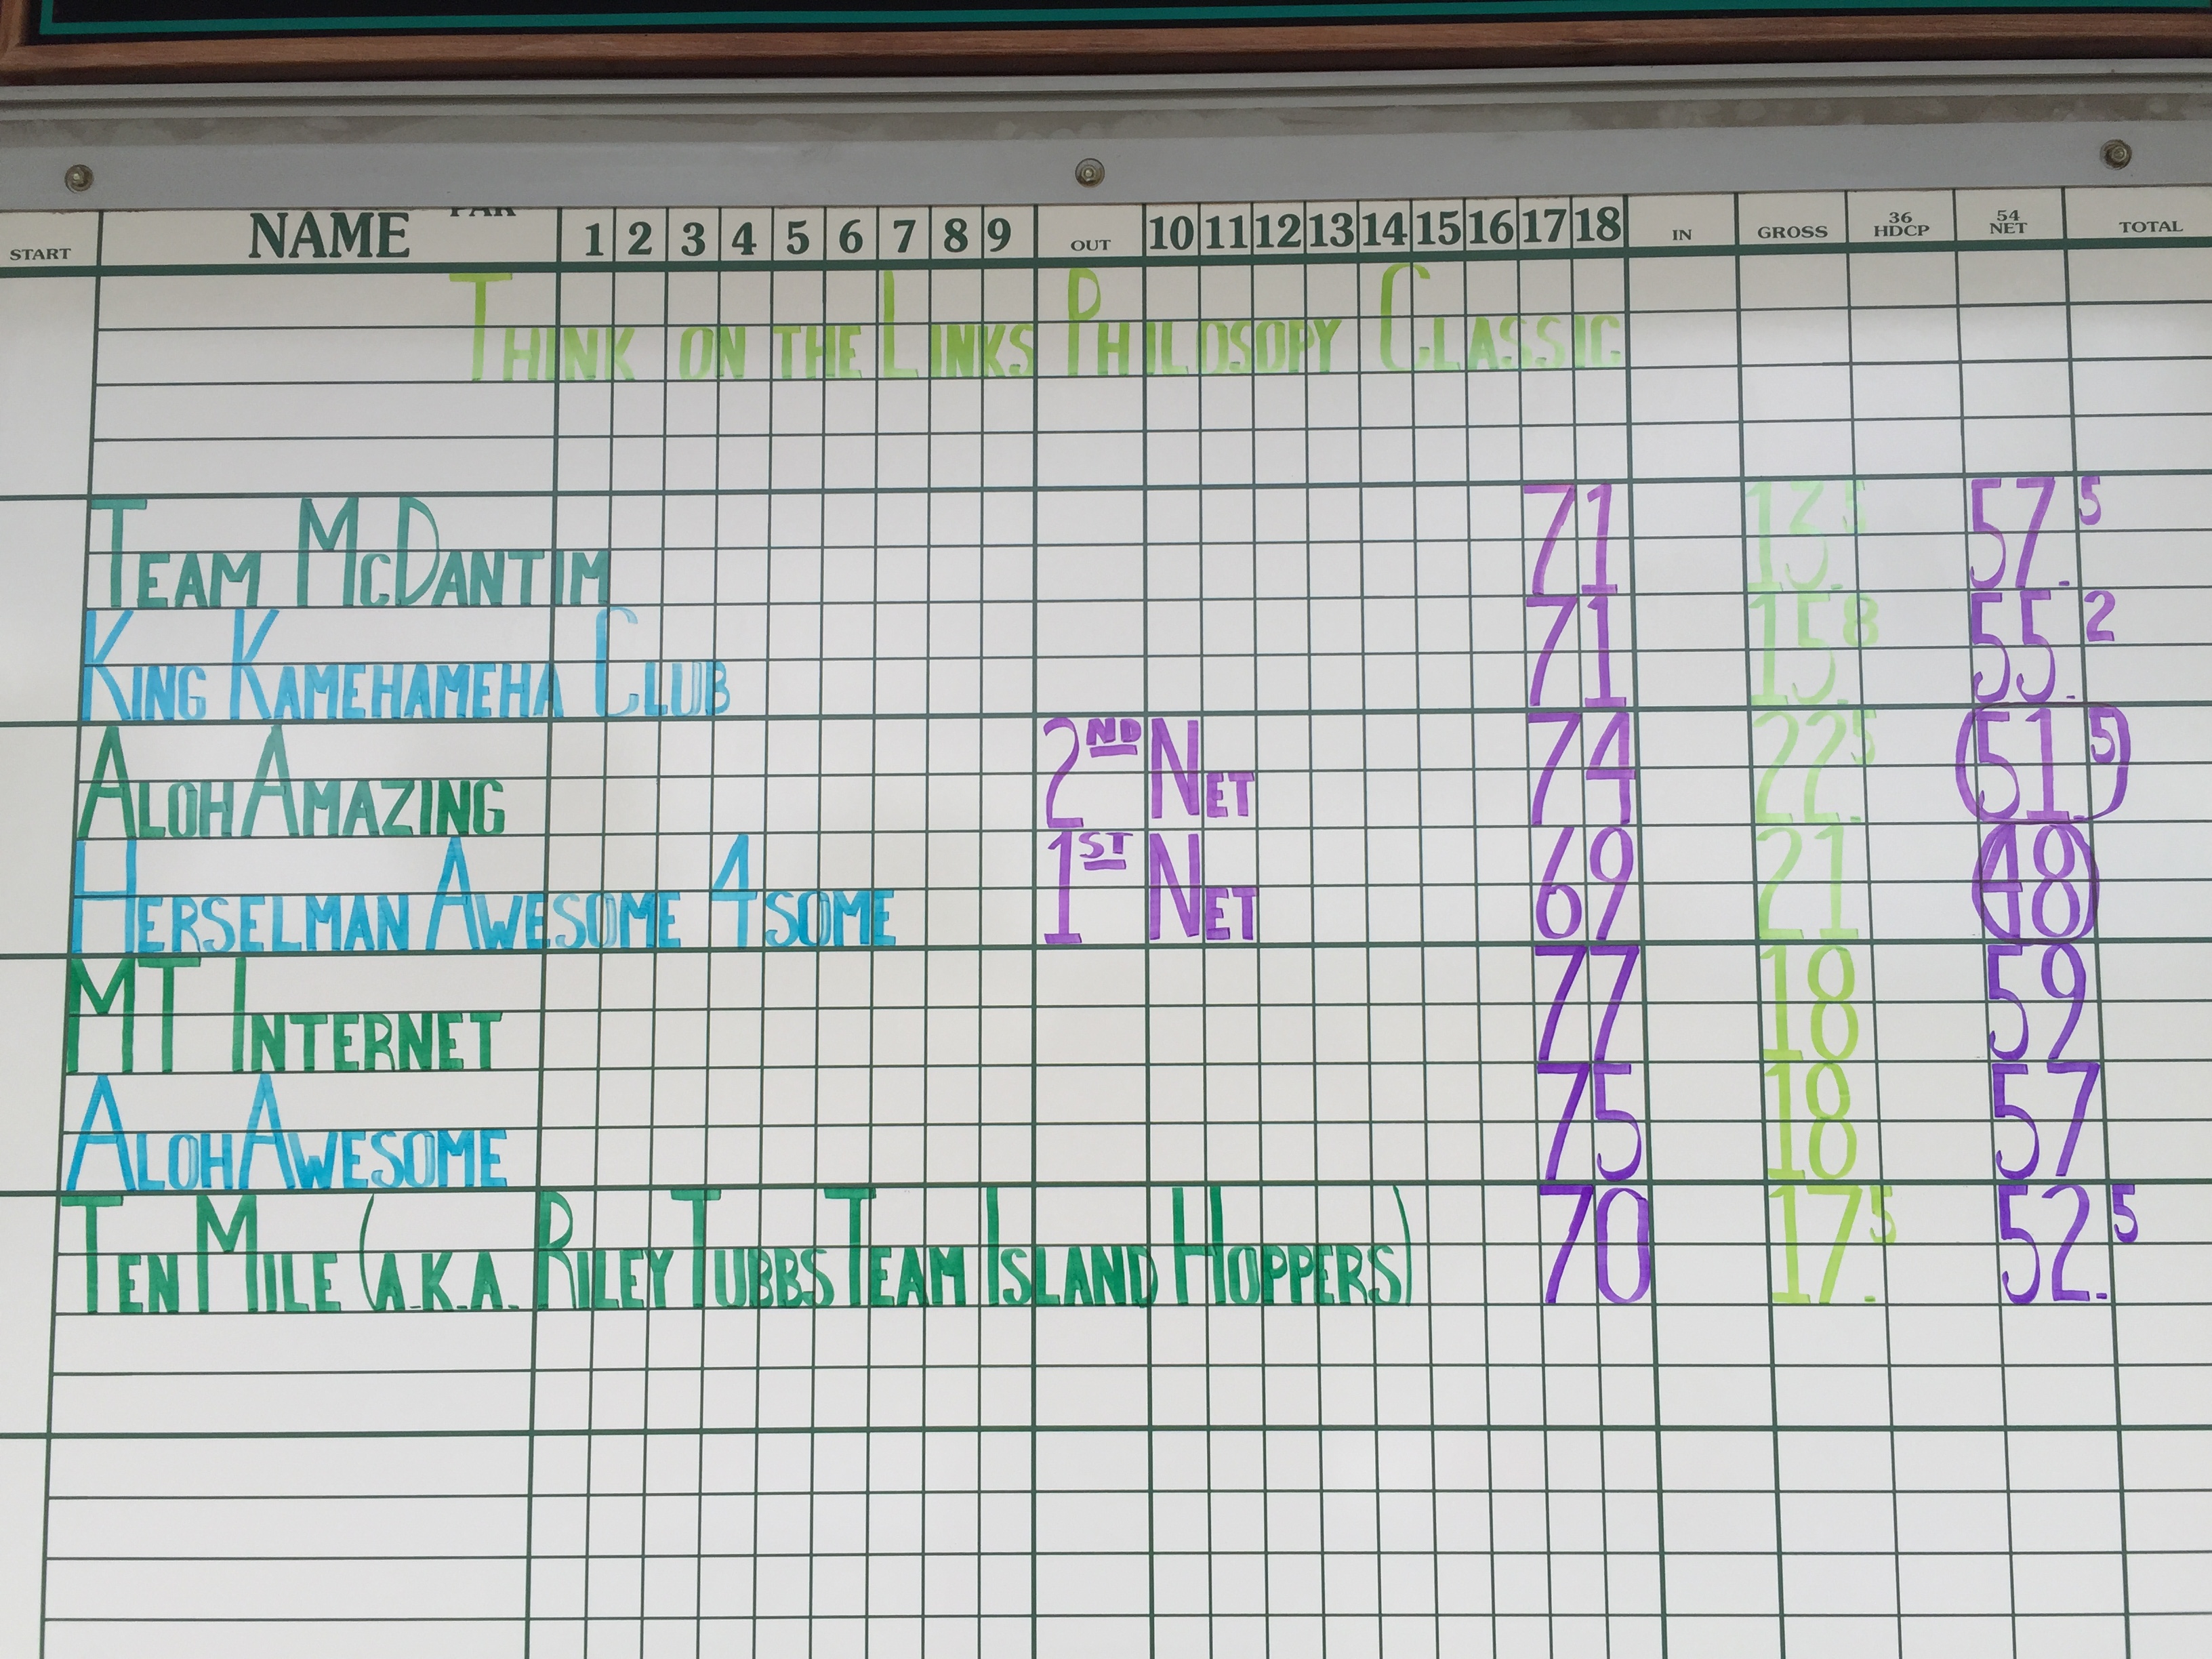 PAR
START NAME 1 2 3 4 5 6 7 8 9 OUT 10 11 12 13 14 15 16 17 18 IN GROSS 36 HDCP 54 NET TOTAL
THINK ON THE LINKS PHILOSOPY CLASSIC
TEAM MCDANTIM 71 13.5 57.5
KING KAMEHAMEHA CLUB 71 15.8 55.2
ALOHAMAZING 2ND NET 74 22.5 51.5
HERSELMAN AWESOME 4SOME 1ST NET 69 21 48
MT INTERNET 77 18 59
ALOHAWESOME 75 18 57
TEN MILE (A.K.A. RILEY TUBBS TEAM ISLAND HOPPERS) 70 17.5 52.5